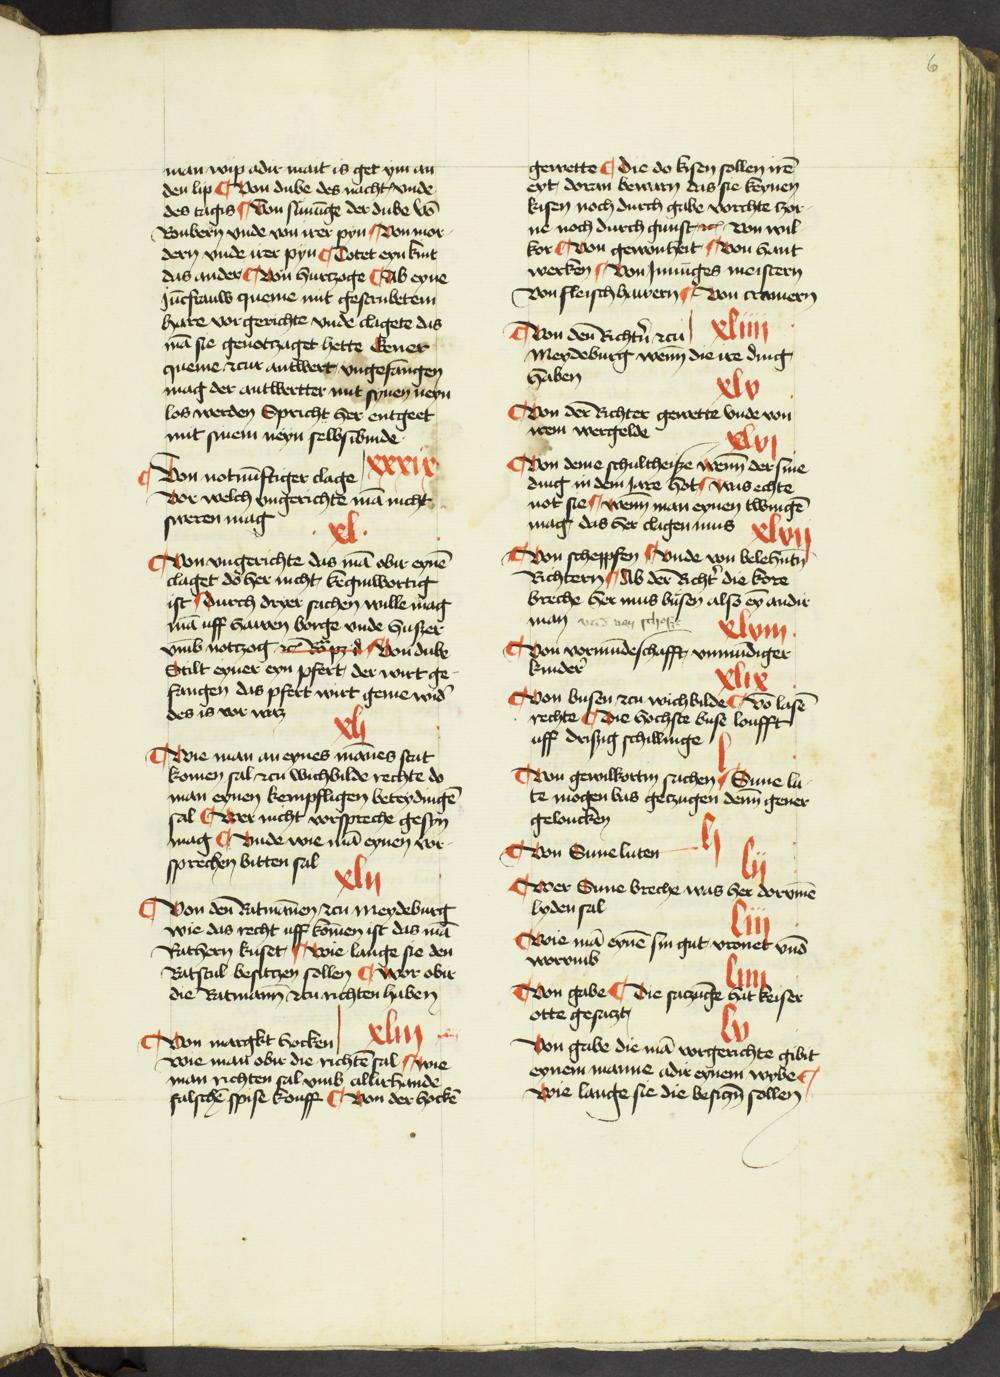 6
man wip adir mait is get ym an
den lip ¶ Von dube des nacht vnde
des tagis ¶ Von sunūge der dube vō
Roubern vnde von irer pyn ¶ Von mor-
dern vnde irer pyn ¶ Totet eyn kint
das ander ¶ Von hurczoge ¶ Ab eyne
Jūcfrauw queme mit gestrubetem
hare vor gerichte vnde clagete das
mā sie genotczaget hette Gener
queme czur antwert vngefangen
mag der antwertter mit synen neyn
los werden Spricht her entgeet
mit sinem neyn selbsibinde
¶ Von notnūftiger clage xxxix
Vor welch vngerichte mā nicht
sweren mag
xl
¶ Von vngerichte das mā obir eynē
claget do her nicht keginwortig
ist ¶ Durch dryer sachen wille mag
mā uff hawen borge vnde huszer
vmb notczog ¶ Von dube
Stilt eyner eyn pfert der wirt ge-
fangen das pfert wirt gene wid
des is vor waz
xli
¶ Wie man an eynes mānes stat
komen sal czu wichbilde rechte do
man eynen kempfligen beteydingē
sal ¶ Wer nicht vorspreche gesyn
mag ¶ Vnde wie mā eynen vor-
sprechen bitten sal
xlii
¶ Von den Ratmānen czu Meydeburg
wie das recht uff komen ist das mā
Rathern kuset ¶ Wie lange sie den
Ratstul besitczen sollen ¶ Wor obir
die Ratmann czu richten haben
¶ Von margkt hocken xliii
wie man obir die richtē sal ¶ Wie
man richten sal vmb allirhande
falschē spise kouff ¶ Von der hockē
gewette ¶ Die do kisen sollen irē
eyt doran bewarn das sie keynen
kisen noch durch gabe vorchte czor-
ne noch durch gunst Von wil
kor ¶ Von gewonheit ¶ Von hant
wercken ¶ Von Innūges meistern
Von fleischhawern ¶ Von cramern
¶ Von den Richtn czu xliiii
Meydeburg wenn die ire ding
haben
xlv
¶ Von der Richter gewette Vnde von
irem wergelde
xlvi
¶ Von deme schultheisze wenn der sine
ding in dem Jare hot ¶ Was echte
not sie ¶ Wenn man eynen twingē
mag das her clagen mus
xlvii
¶ Von scheppfen ¶ Vnde von belehntn
Richtern ¶ Ab der Richt die kore
breche her mus büsen also eyn andir
man
xlviii
¶ Von vormundeschafft vnmundiger
kinder
xlix
¶ Von busen czu wichbilde ¶ Vō lasē
rechte ¶ Die hochste buse loufft
uff driszig schillinge
l
¶ Von gewilkortin sachen ¶ Sune lu-
te mogen bas geczugen denn gener
geloucken
¶ Von Sune luten li
lii
¶ Wer Sune breche was her dorvmē
lyden sal
liii
¶ Wie mā eynē sin gut vronet vnd
worvmb
liiii
¶ Von gabe ¶ Die saczūge hat keiser
otte gesaczt
lv
Von gabe die mā vorgerichte gibit
eynem manne adir eynem wybe ¶
Wie lange sie die besiczn sollen